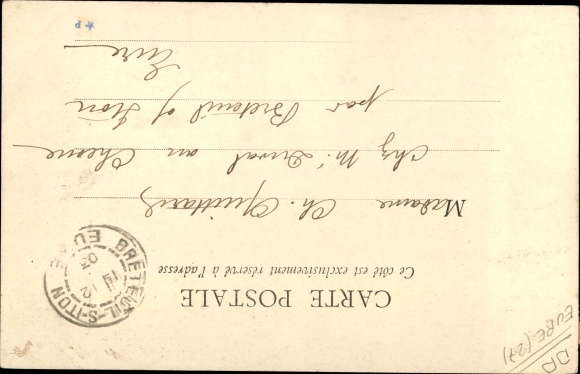 CARTE POSTALE
Ce côté est exclusivement réservé à l'adresse
Madame Ch. Guittard
chez Mr Duval au Chesne
par Breteuil s/ Iton
Eure
BRETEUIL-S-ITON
EURE
12
03
EURE (27)